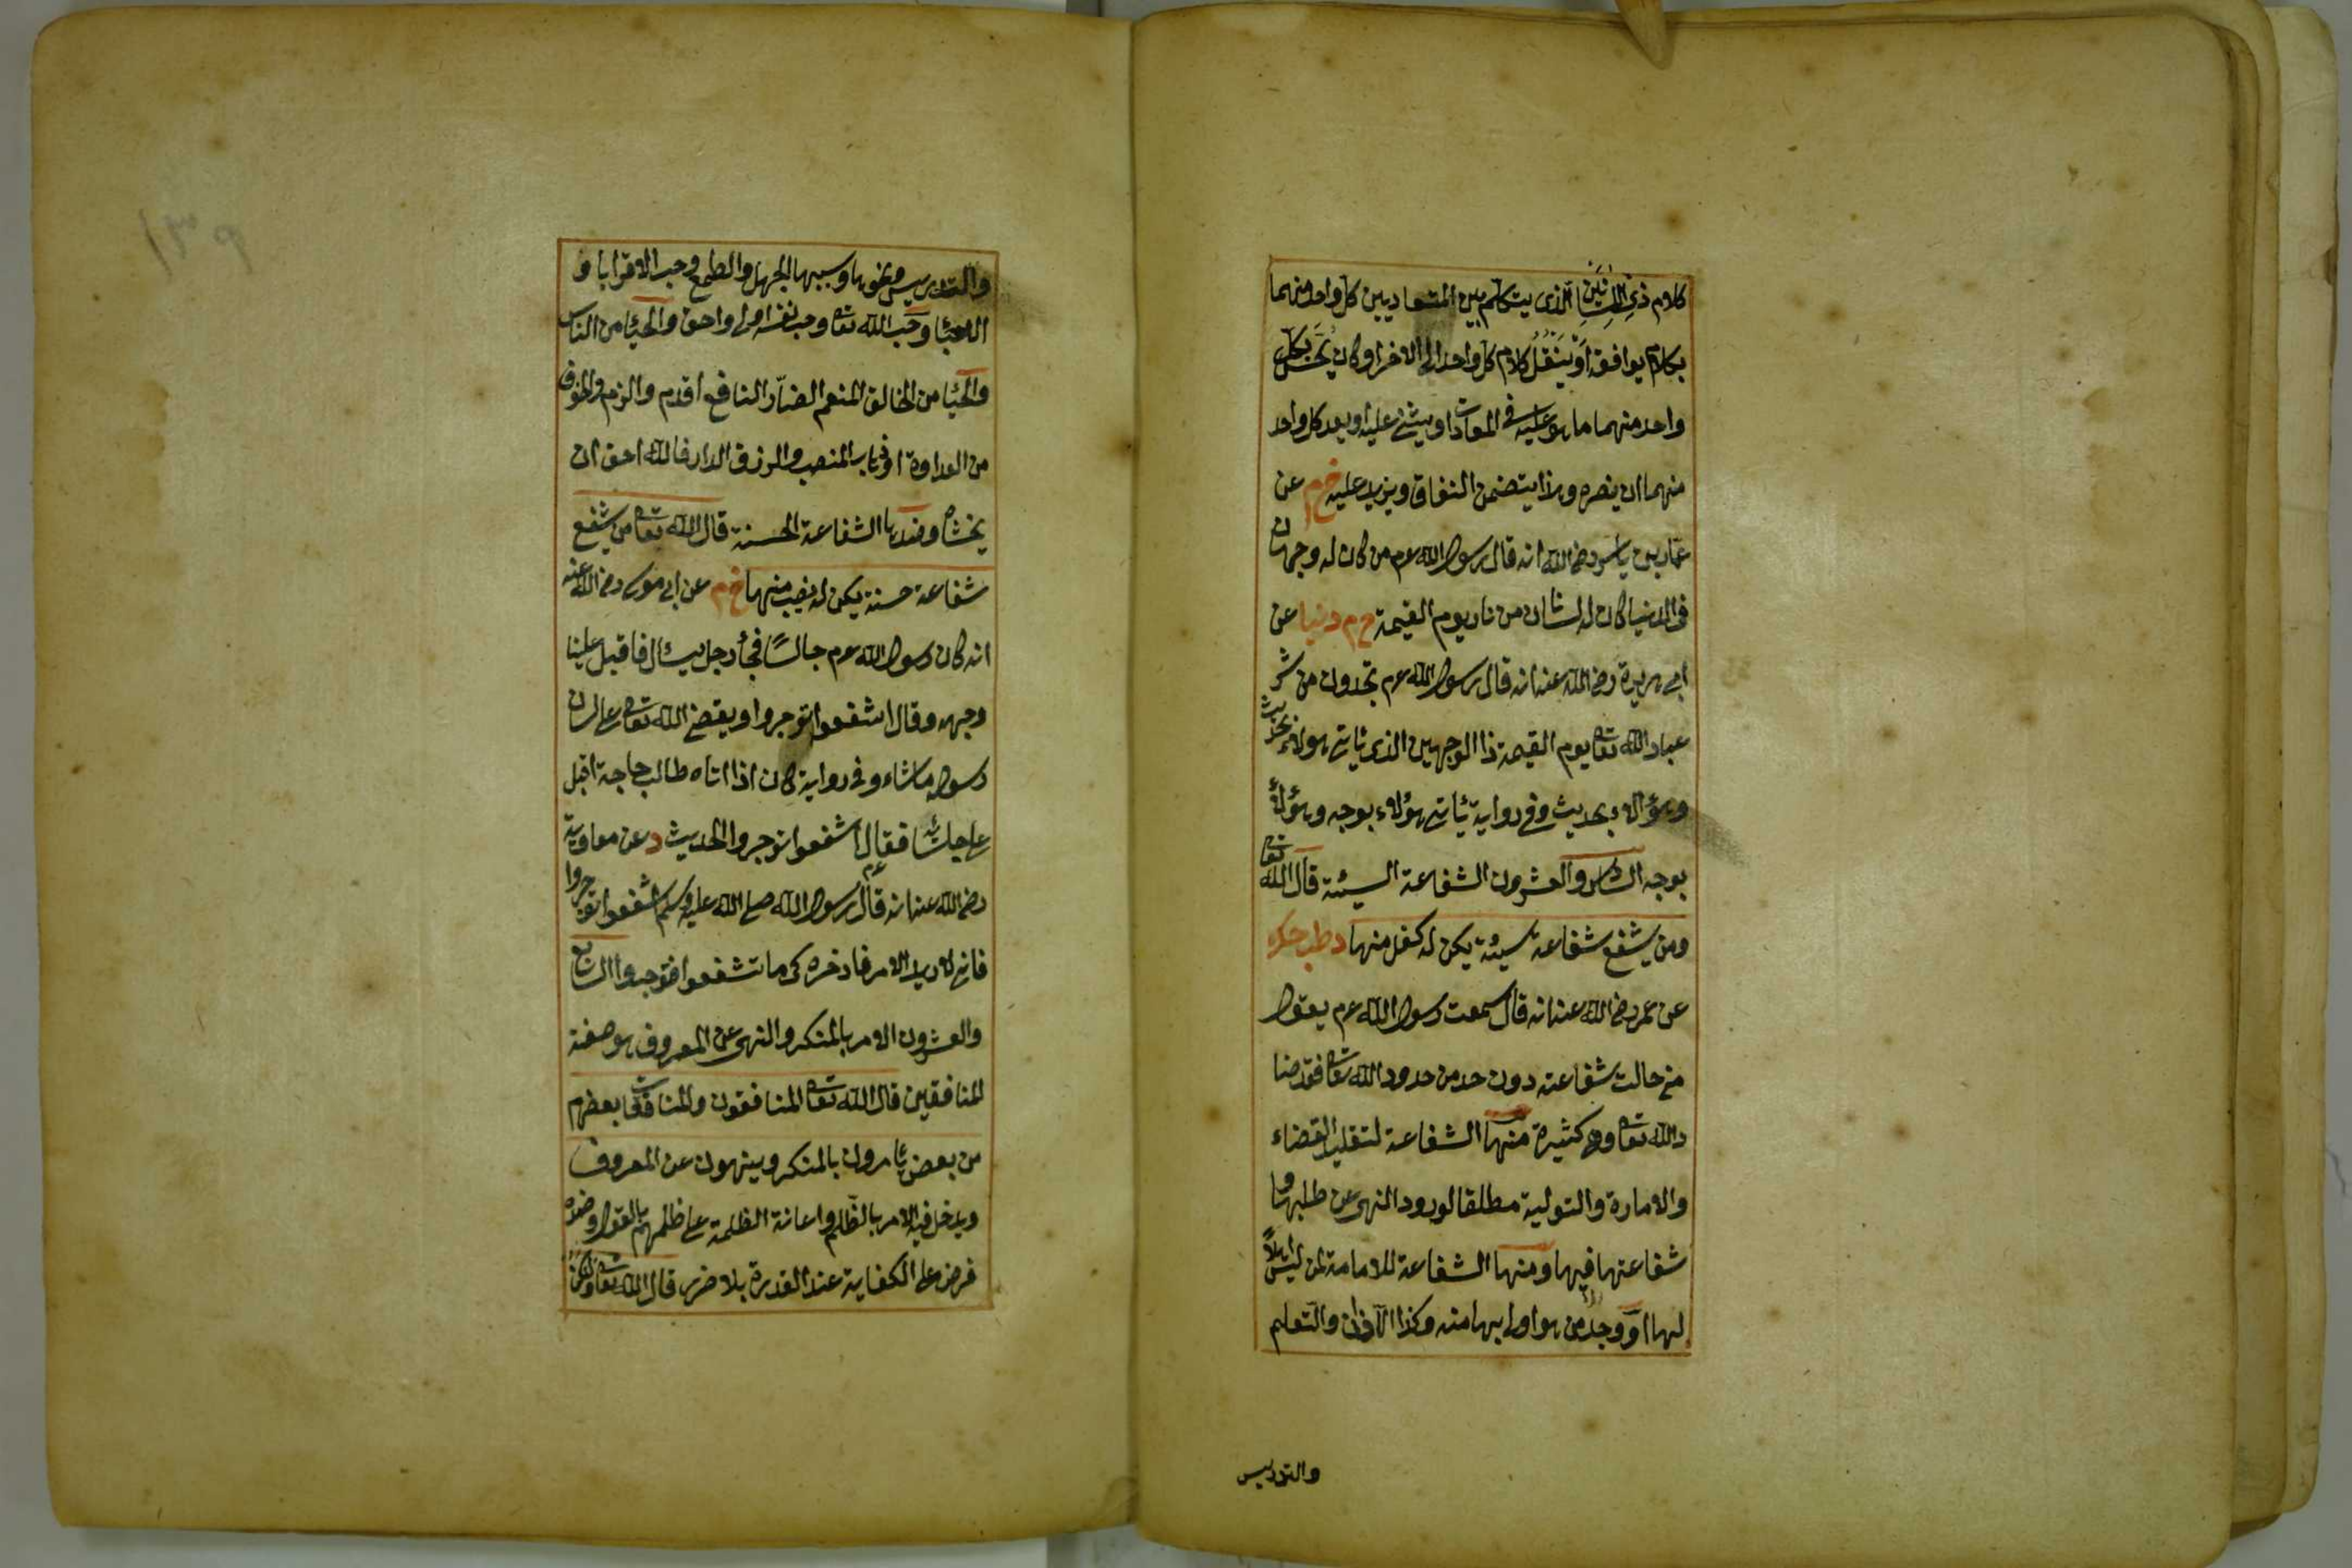 كلام ذى اللسانين الذى يتكلم بين المتعاديين كل واحد منهما
بكلام يوافقه او ينقل كلام كل واحد الى الاخر او كان يحسّن بكل
واحد منهما ما هو عليه فى المعادات او يثنى عليه او يعد كل واحد
منهما ان ينصره وهذا يتضمن النفاق ويزيد عليه خ م عن
عمار بن ياسر رضى الله انه قال رسول الله عم من كان له وجهان
فى الدنيا كان له لسانان من نار يوم القيمة خ م دنيا عن
ابى هريرة رضى الله عنه انه قال رسول الله عم تجدون من شر
عباد الله تعا يوم القيمة ذا الوجهين الذى ياتى هولاء بحديث
وهؤلاء بحديث وفى رواية ياتى هؤلاء بوجه وهؤلاء
بوجه السادس والعشرون الشفاعة السيئة قال الله تعا
ومن يشفع شفاعة سيئة يكن له كفل منها د طب حك
عن عمر رضى الله عنه انه قال سمعت رسول الله عم يقول
من حالت شفاعته دون حد من حدود الله تعا فقد ضا
د الله تعا وهى كثيرة منها الشفاعة لتقليد القضاء
والامارة والتولية مطلقا لورود النهى عن طلبها و
شفاعتها فيها ومنها الشفاعة للامامة لمن ليس اهلاً
لها او وجد من هو اولى بها منه وكذا الاذان والتعلم
والتدريس
والتدريس ونحوها وسببها الجهل والطمع وحب الاقرابا و
الاحبا وحب الله تعا وحب نفسه اولى واحق والحيا من الناس
والحيا من الخالق المنعم الضارّ النافع اقدم والزم والخوف
من العداوة او ذهاب المنصب والرزق الدار فالله احق ان
يخشاه وضدها الشفاعة الحسنة قال الله تعا من يشفع
شفاعة حسنة يكن له نصيب منها خ م عن ابى موسى رضى الله عنه
انه كان رسول الله عم جالسًا فجأ رجل يسأل فاقبل علينا
وجهه وقال اشفعوا توجروا ويقضى الله تعا على لسان
رسوله ما شاء وفى رواية كان اذا اتاه طالب حاجة اقبل
على جلسائه فقال اشفعوا توجروا الحديث د عن معاوية
رضى الله عنه انه قال رسول الله صلى الله عليه وسلم اشفعوا توجروا
فانى لاريد الامر فاوخره كى ما تشفعوا فتوجروا السابع
والعشرون الامر بالمنكر والنهى عن المعروف هو صفة
المنافقين قال الله تعا المنافقون والمنافقات بعضهم
من بعض يامرون بالمنكر وينهون عن المعروف
ويدخل فيه الامر بالظلم واعانة الظلمة على ظلمهم بالقول وضده
فرض على الكفاية عند القدرة بلا ضرر قال الله تعا ولتكن
١٣٩